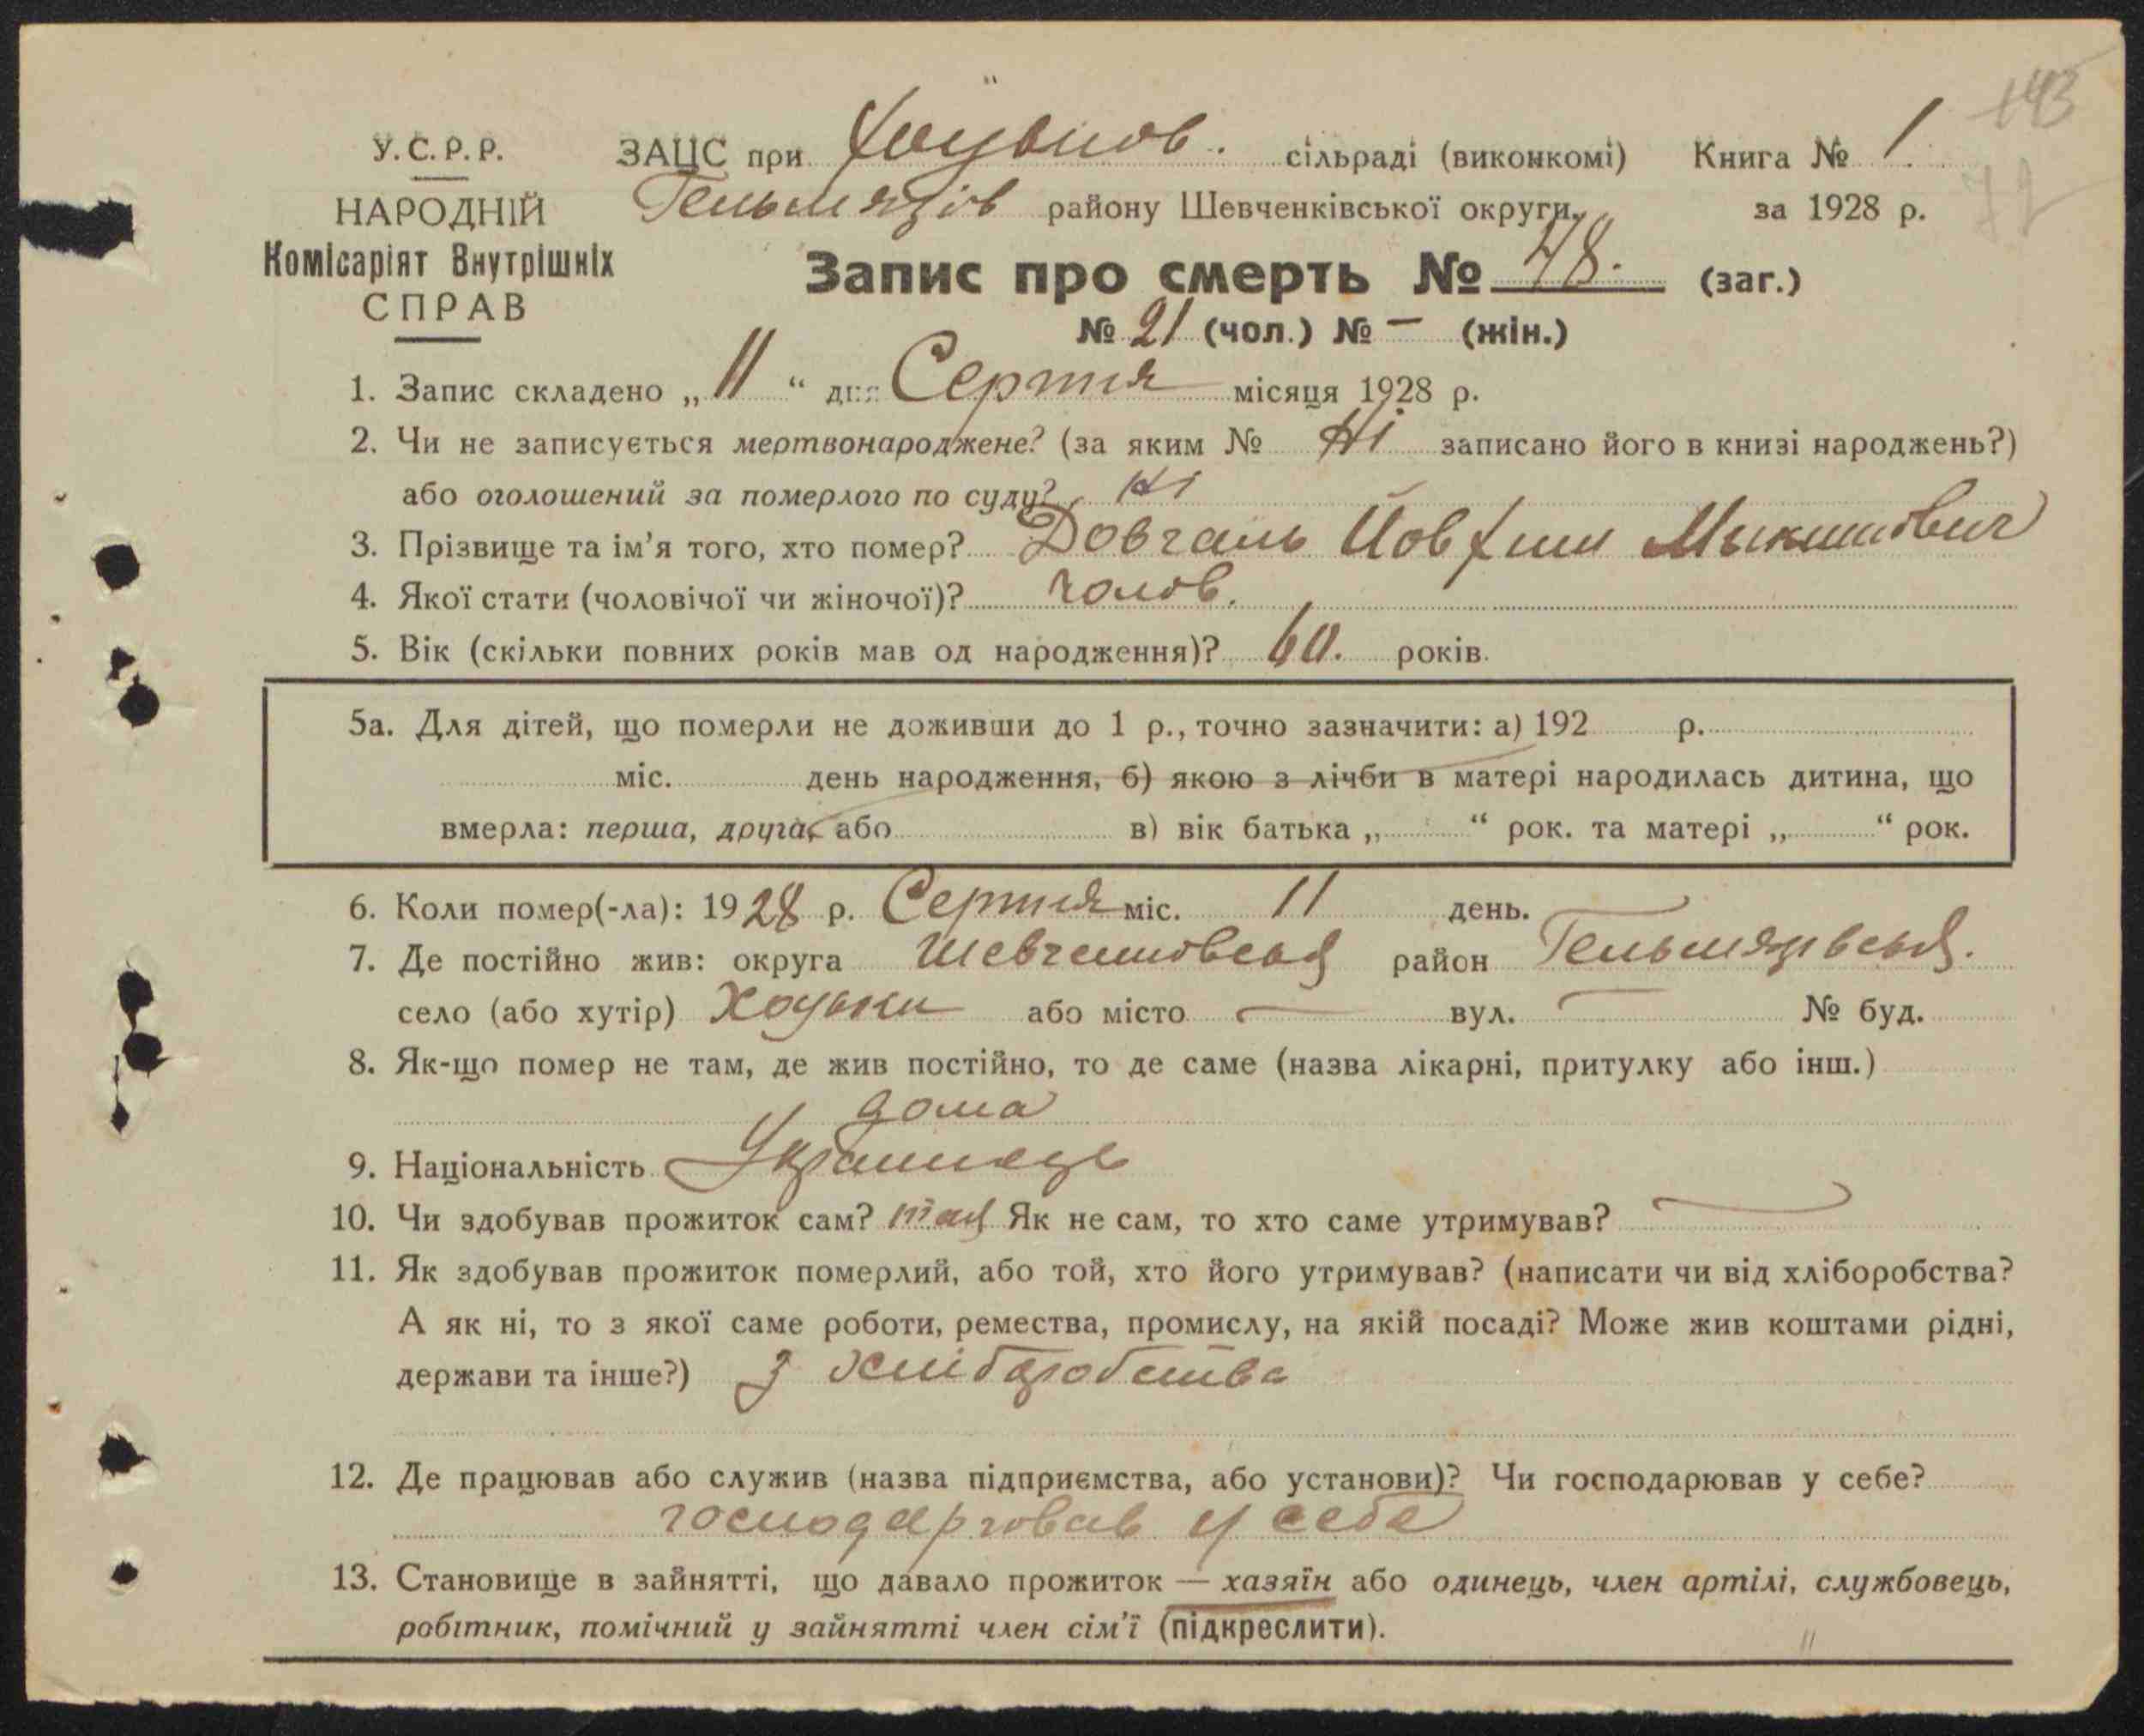 143
72
У.С.Р.Р.
НАРОДНІЙ
Комісаріят Внутрішніх
СПРАВ
ЗАЦС при Хоцьков. сільраді (виконкомі) Книга № 1
Гельмязів району Шевченківської округи. за 1928 р.
Запис про смерть № 48. (заг.)
№ 21 (чол.) № — (жін.)
1. Запис складено „11“ дня Серпня місяця 1928 р.
2. Чи не записується мертвонароджене? (за яким № Ні записано його в книзі народжень?)
або оголошений за померлого по суду? Ні
3. Прізвище та ім'я того, хто помер? Довгаль Йовхим
4. Якої стати (чоловічої чи жіночої)? чолов.
5. Вік (скільки повних років мав од народження)? 60. років.
5а. Для дітей, що померли не доживши до 1 р., точно зазначити: а) 192 р.
міс. день народження, б) якою з лічби в матері народилась дитина, що
вмерла: перша, друга, або в) вік батька „ “ рок. та матері „ “ рок.
6. Коли помер(-ла): 1928 р. Серпня міс. 11 день.
7. Де постійно жив: округа Шевченковськ район Гельмязівськ.
село (або хутір) Хоцьки або місто — вул. — № буд.
8. Як-що помер не там, де жив постійно, то де саме (назва лікарні, притулку або інш.)
дома
9. Національність Українець
10. Чи здобував прожиток сам? так Як не сам, то хто саме утримував? —
11. Як здобував прожиток померлий, або той, хто його утримував? (написати чи від хліборобства?
А як ні, то з якої саме роботи, ремества, промислу, на якій посаді? Може жив коштами рідні,
держави та інше?) з хліборобства
12. Де працював або служив (назва підприємства, або установи)? Чи господарював у себе?
господарював у себе
13. Становище в зайнятті, що давало прожиток — хазяїн або одинець, член артілі, службовець,
робітник, помічний у зайнятті член сім'ї (підкреслити).